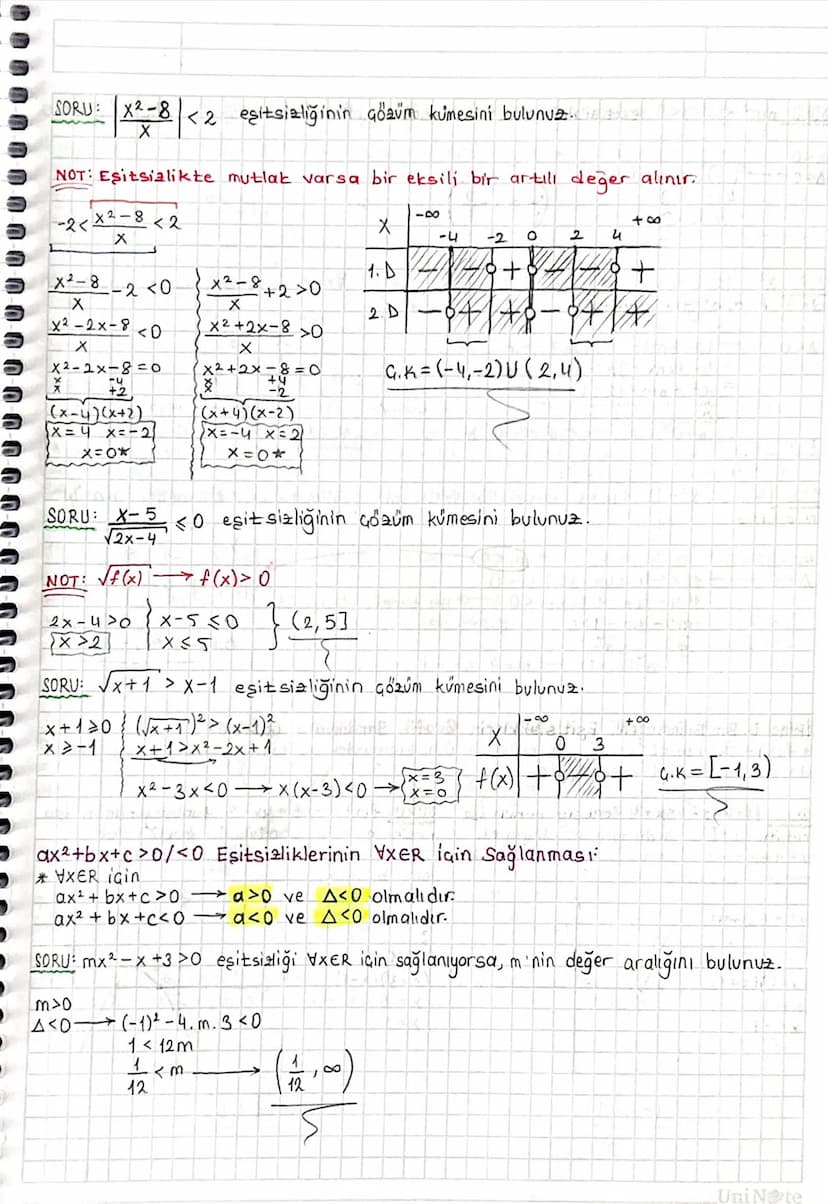 SORU: |x²-8 / x| < 2 eşitsizliğinin çözüm kümesini bulunuz.
NOT: Eşitsizlikte mutlak varsa bir eksili bir artılı değer alınır.
-2 < x²-8 / x < 2
x²-8 / x - 2 < 0
x²-2x-8 / x < 0
x²-2x-8=0
x -4
x +2
(x-4)(x+2)
x=4 x=-2
x=0*
x²-8 / x + 2 > 0
x²+2x-8 / x > 0
x²+2x-8=0
x +4
x -2
(x+4)(x-2)
x=-4 x=2
x=0*
x -∞ -4 -2 0 2 4 +∞
1. D - - + - - +
2. D - + + - + +
Ç.K=(-4,-2)U(2,4)
SORU: x-5 / √2x-4 ≤ 0 eşitsizliğinin çözüm kümesini bulunuz.
NOT: √f(x) → f(x)>0
2x-4>0
x>2
x-5≤0
x≤5
(2,5]
SORU: √x+1 > x-1 eşitsizliğinin çözüm kümesini bulunuz.
x+1≥0
x≥-1
(√x+1)²>(x-1)²
x+1>x²-2x+1
x²-3x<0 → x(x-3)<0 → x=3
x=0
x -∞ 0 3 +∞
f(x) + - +
Ç.K=[-1,3)
ax²+bx+c>0/<0 Eşitsizliklerinin ∀xER için Sağlanması:
* ∀xER için
ax²+bx+c>0 → a>0 ve Δ<0 olmalıdır.
ax²+bx+c<0 → a<0 ve Δ<0 olmalıdır.
SORU: mx²-x+3>0 eşitsizliği ∀xER için sağlanıyorsa, m'nin değer aralığını bulunuz.
m>0
Δ<0 → (-1)²-4.m.3<0
1<12m
1/12 < m → (1/12, ∞)
UniNote